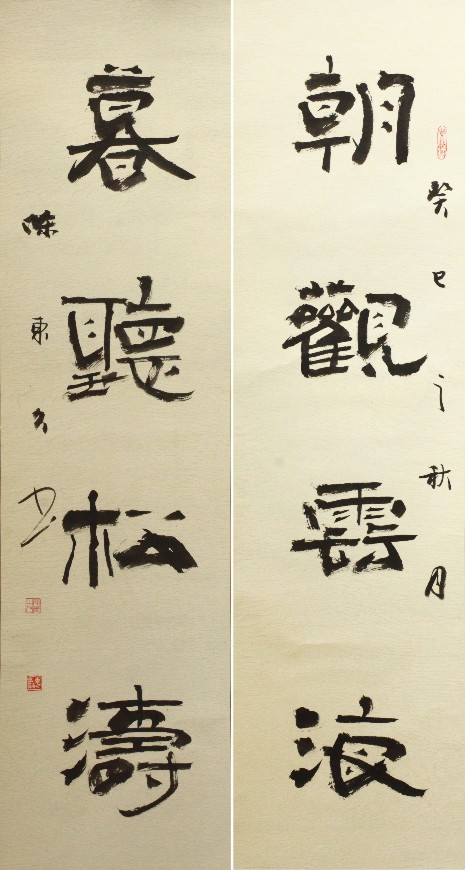 癸巳之秋月
朝觀雲浪
暮聽松濤
陳東久书